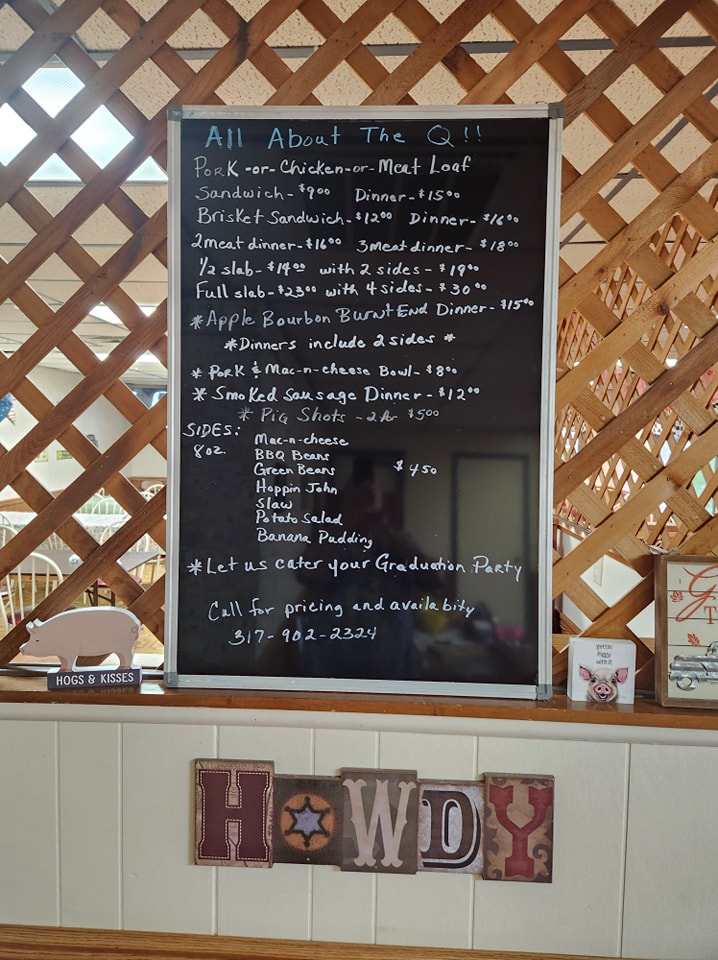 All About The Q!!
Pork -or- Chicken -or- Meat Loaf
Sandwich - $9.00 Dinner - $15.00
Brisket Sandwich - $12.00 Dinner - $16.00
2 meat dinner - $16.00 3 meat dinner - $18.00
1/2 slab - $14.00 with 2 sides - $19.00
Full slab - $23.00 with 4 sides - $30.00
*Apple Bourbon Burnt End Dinner - $15.00
*Dinners include 2 sides *
* Pork & Mac-n-cheese Bowl - $8.00
* Smoked Sausage Dinner - $12.00
* Pig Shots - 2 for $5.00
SIDES:
8oz.
Mac-n-cheese
BBQ Beans
Green Beans $4.50
Hoppin John
Slaw
Potato Salad
Banana Pudding
*Let us cater your Graduation Party
Call for pricing and availabity
317-902-2324
HOGS & KISSES
gettin'
Piggy
with it
HOWDY